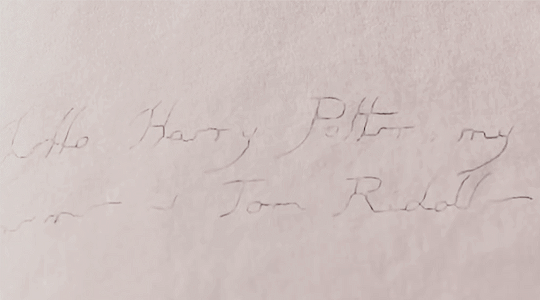 Hello Harry Potter my
Tom Riddle